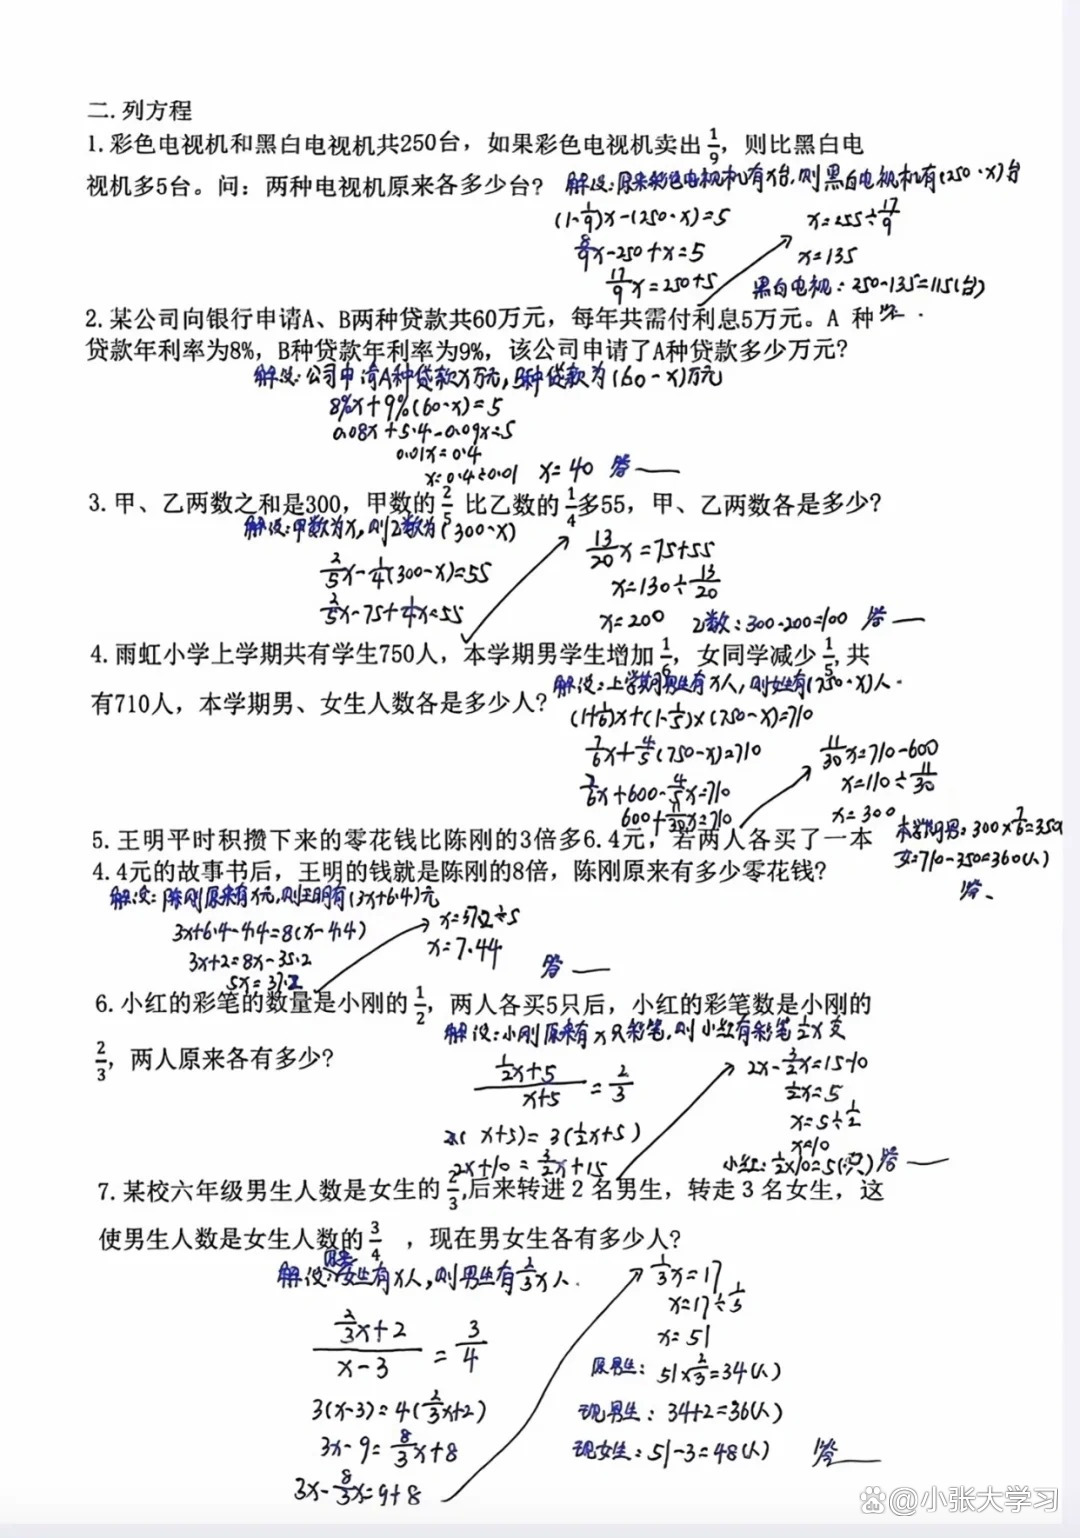 二.列方程
1.彩色电视机和黑白电视机共250台，如果彩色电视机卖出1/9，则比黑白电
视机多5台。问：两种电视机原来各多少台?
解设:原来彩色电视机有x台,则黑白电视机有(250-x)台
(1-1/9)x-(250-x)=5
8/9x-250+x=5
17/9x=250+5
x=255÷17/9
x=135
黑白电视:250-135=115(台)
答
2.某公司向银行申请A、B两种贷款共60万元，每年共需付利息5万元。A 种
贷款年利率为8%，B种贷款年利率为9%，该公司申请了A种贷款多少万元?
解设:公司申请A种贷款x万元,B种贷款为(60-x)万元
8%x+9%(60-x)=5
0.08x+5.4-0.09x=5
0.01x=0.4
x=0.4÷0.01 x=40 答——
3.甲、乙两数之和是300，甲数的2/5 比乙数的1/4多55，甲、乙两数各是多少?
解设:甲数为x,则乙数为(300-x)
2/5x-1/4(300-x)=55
2/5x-75+1/4x=55
13/20x=75+55
x=130÷13/20
x=200 乙数:300-200=100 答——
4.雨虹小学上学期共有学生750人，本学期男学生增加1/6，女同学减少1/5,共
有710人，本学期男、女生人数各是多少人?
解设:上学期男生有x人,则女生有(750-x)人.
(1+1/6)x+(1-1/5)×(750-x)=710
7/6x+4/5(750-x)=710
7/6x+600-4/5x=710
600+11/30x=710
11/30x=710-600
x=110÷11/30
x=300
本学期男:300×7/6=350
女=710-350=360(人)
答、
5.王明平时积攒下来的零花钱比陈刚的3倍多6.4元，若两人各买了一本
4.4元的故事书后，王明的钱就是陈刚的8倍，陈刚原来有多少零花钱?
解设:陈刚原来有x元,则王明有(3x+6.4)元
3x+6.4-4.4=8(x-4.4)
3x+2=8x-35.2
5x=37.2
x=37.2÷5
x=7.44
答——
6.小红的彩笔的数量是小刚的1/2，两人各买5只后，小红的彩笔数是小刚的
2/3，两人原来各有多少?
解设:小刚原来有x只彩笔,则小红有彩笔1/2x支
(1/2x+5)/(x+5)=2/3
2( x+5)=3(1/2x+5)
2x+10=3/2x+15
2x-3/2x=15-10
1/2x=5
x=5÷1/2
x=10
小红:1/2×10=5(只) 答——
7.某校六年级男生人数是女生的2/3,后来转进 2 名男生，转走 3 名女生，这
使男生人数是女生人数的3/4 ，现在男女生各有多少人?
解设:原来女生有x人,则男生有2/3x人.
(2/3x+2)/(x-3)=3/4
3(x-3)=4(2/3x+2)
3x-9=8/3x+8
3x-8/3x=9+8
1/3x=17
x=17÷1/3
x=51
原男生: 51×2/3=34(人)
现男生: 34+2=36(人)
现女生:51-3=48(人) 答——
du@小张大学习